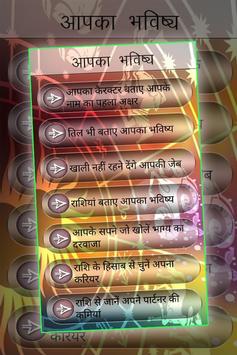 आपका भविष्य
आपका भविष्य
आपका केरक्टर बताए आपके
नाम का पहला अक्षर
तिल भी बताए आपका भविष्य
खाली नहीं रहने देंगे आपकी जेब
राशियां बताए आपका भविष्य
आपके सपने जो खोले भाग्य का
दरवाजा
राशि के हिसाब से चुने अपना
करियर
राशि से जाने अपने पार्टनर की
कमियां
करियर